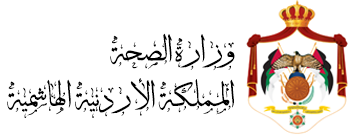 وزارة الصحة
المملكة الأردنية الهاشمية